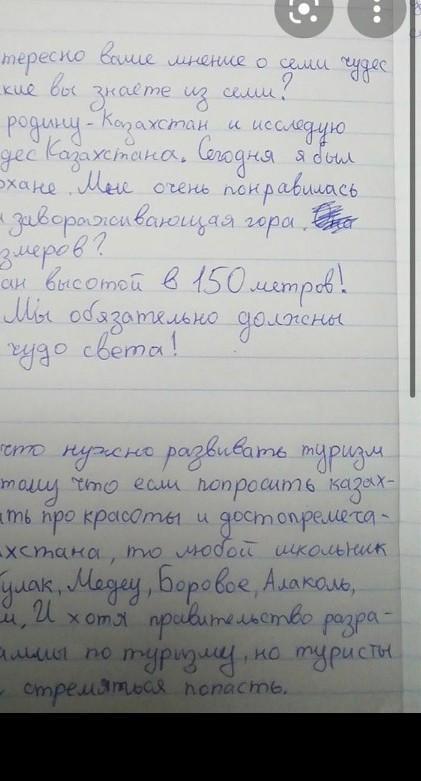 тересно ваше мнение о семи чудес
кие вы знаете из семи?
родину - Казахстан и исследую
дес Казахстана. Сегодня я был
рхане. Мне очень понравилась
завораживающая гора.
змеров?
ан высотой в 150 метров!
Мы обязательно должны
чудо света!
что нужно развивать туризм
тому что если попросить казах-
ать про красоты и достопремеча-
ахстана, то любой школьник
булак, Медеу, Боровое, Алаколь,
и, И хотя правительство разра-
аммы по туризму, но туристы
стремяться попасть.